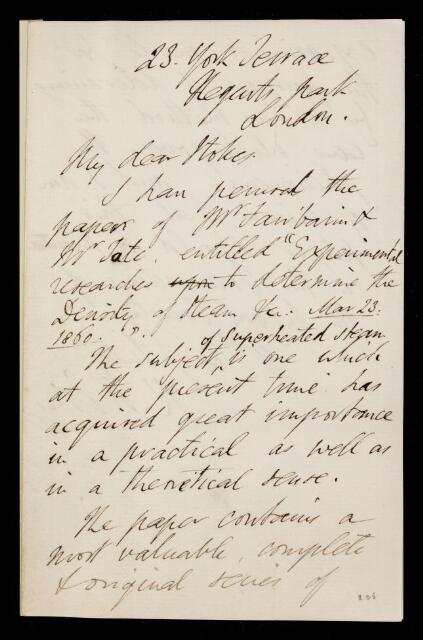 23. York Terrace
Regents Park
London.
My dear Stokes
I have perused the
paper of Mr Fairbairn &
Mr Tate, entitled "Experimental
researches upon to determine the
Density of Steam &c. Mar 23.
1860."
of Superheated steam
The subject is one which
at the present time has
acquired great importance
in a practical as well as
in a theoretical sense.
The paper contains a
most valuable, complete
& original series of